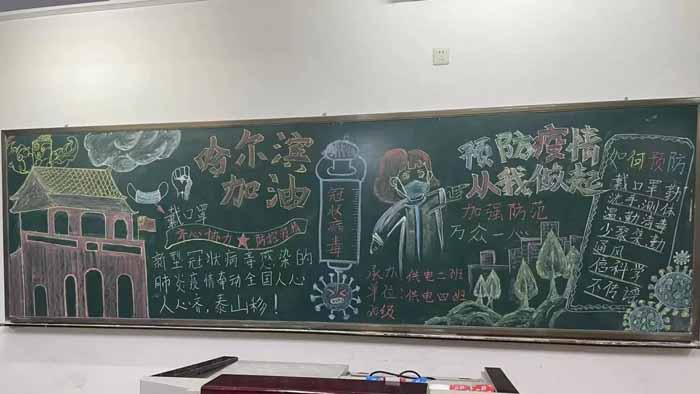 哈尔滨
加油
戴口罩
齐心协力★防控疫情
新型冠状病毒感染的
肺炎疫情牵动全国人心
人心齐,泰山移!
冠状病毒
预防疫情
从我做起
加强防范
万众一心
承办
单位:
供电二班
供电四班
如何预防
戴口罩勤
洗手测体
温勤消毒
少聚集勤
通风
信科学
不传谣